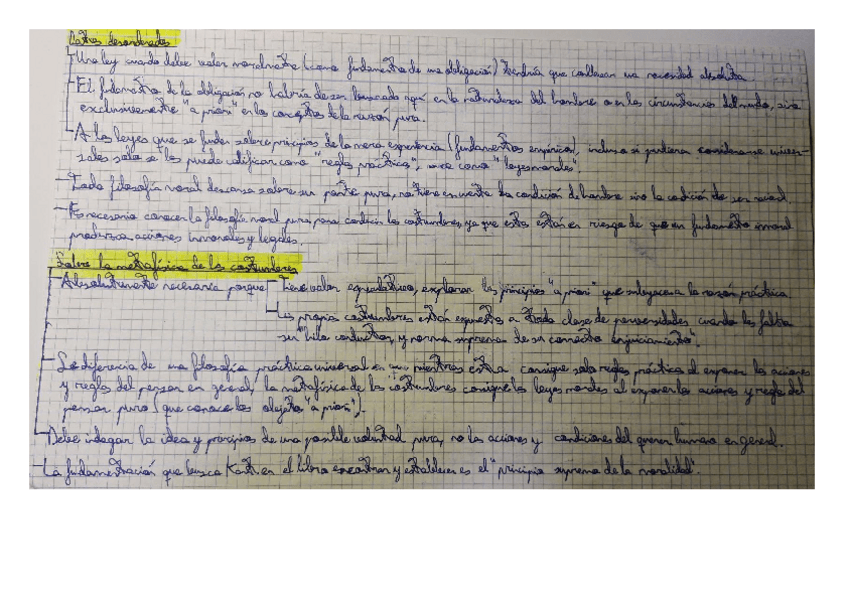 Datos desordenados
- Una ley cuando debe valer moralmente (como fundamento de una obligación) tendría que conllevar una necesidad absoluta.
- El fundamento de la obligación no habría de ser buscado aquí en la naturaleza del hombre o en las circunstancias del mundo, sino
exclusivamente "a priori" en los conceptos de la razón pura.
- A las leyes que se fundan sobre principios de la mera experiencia (fundamentos empíricos), incluso si pudiera considerarse univer-
sales solo se les puede calificar como "regla práctica", no como "leyes morales".
- Toda filosofía moral descansa sobre su parte pura, no tiene en cuenta la condición de hombre sino la condición de ser racional.
- Es necesario conocer la filosofía moral pura para conducir las costumbres, ya que estas están en riesgo de que un fundamento inmoral
produzca acciones inmorales y legales.
Sobre la metafísica de las costumbres
- Absolutamente necesaria porque - Tiene valor especulativo, explorar los principios "a priori" que subyacen a la razón práctica
- Las propias costumbres están expuestas a toda clase de perversidades cuando les falta
su "hilo conductor, y norma suprema de su correcto enjuiciamiento".
- La diferencia de una filosofía práctica universal en que mientras esta consigue solo reglas práctica al exponer las acciones
y reglas del pensar en general, la metafísica de las costumbres consigue las leyes morales al exponer las acciones y regla del
pensar puro (que conoce los objetos "a priori").
- Debe indagar la idea y principios de una posible voluntad pura, no las acciones y condiciones del querer humano en general.
- La fundamentación que busca Kant en el libro encontrar y establecer es el "principio supremo de la moralidad".